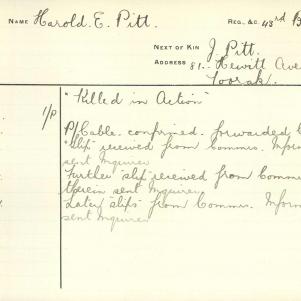 NAME Harold. E. Pitt. REG., &C. 43rd B
NEXT OF KIN J. Pitt.
ADDRESS 81. Hewitt Ave
Toorak.
"Killed in Action"
1/P
P/Cable. confirmed. forwarded
"slip" received from Commns. Inform
sent Inquirer
Further "slip" received from Comm
therein sent Inquirer
Later "slips" from Commns. Inform
sent Inquirer